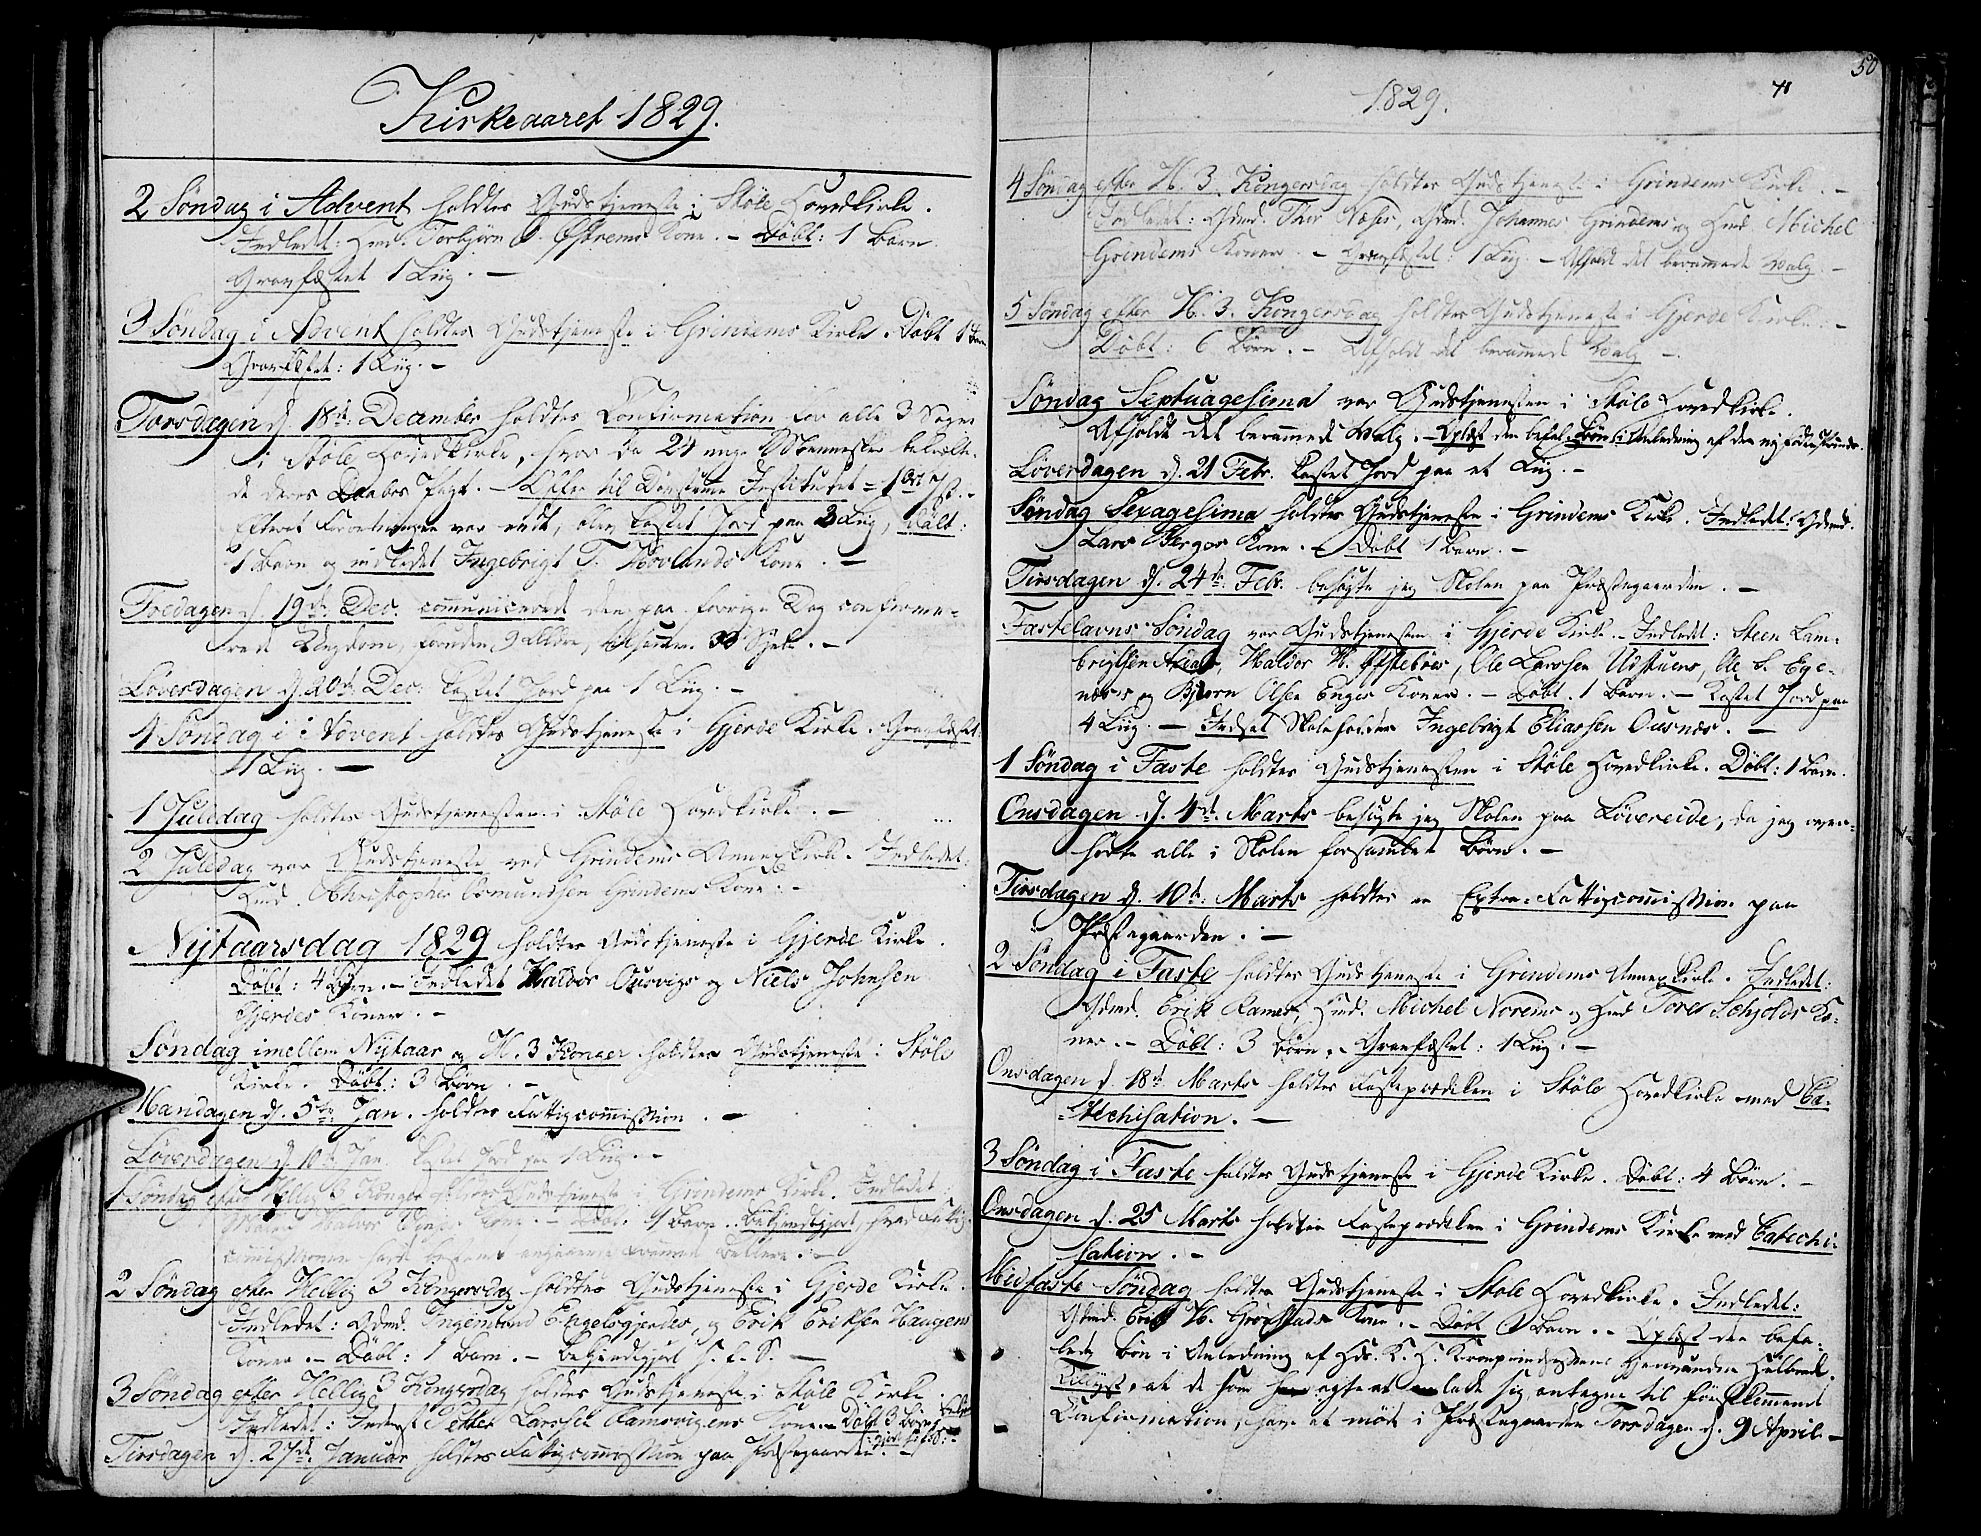 Kirkeaaret 1829.
2 Søndag i Advent holdtes Gudstjeneste i Støle Hovedkirke.
Indledet: Hmd. Torbjørn Østrems Kone. - Døbt: 1 Barn.
Gravfæstet 1 Liig. -
3 Søndag i Advent holdtes Gudstjeneste i Grindems Kirke. Døbt 1 Barn
Gravfæstet: 1 Liig. -
Torsdagen d. 18de December holdtes Confirmation for alle 3 Sogne
i Støle Hovedkirke, hvor da 24 unge Mennesker bekræfte-
de deres Daabes Pagt. - Offer til Døvstumme Institutet =
Efterat Forretningen var endt, blev kastet Jord paa 2 Liig, Døbt:
1 Barn og indledet Ingebrigt T. Hovlands Kone. -
Fredagen d. 19de Dec. communicerede den paa forrige Dag confirme-
rede Ungdom, foruden 9 Ældre, tilsammen Sjæle. -
Løverdagen d. 20de Dec: kastet Jord paa 1 Liig. -
4 Søndag i Advent holdtes Gudstjeneste i Gjerde Kirke. Gravfæstet:
1 Liig. -
1 Juledag holdtes Gudstjenesten i Støle Hovedkirke. -
2 Juledag var Gudstjeneste ved Grindems Annexkirke. Indledet:
Hmd. Christopher Osmundsen Grindems Kone. -
Nytaarsdag 1829 holdtes Gudstjeneste i Gjerde Kirke.
Døbt: 4 Børn. - Indledet Haldor Ousvigs og Niels Johnsen
Gjerdes Koner. -
Søndag imellem Nytaar og H. 3 Konger holdtes Gudstjeneste i Støle
Kirke. Døbt: 3 Børn. -
Mandagen d. 5te Jan. holdtes Fattigcommission. -
Løverdagen d. 10de Jan. kastet Jord paa 1 Liig. -
1 Søndag efter Hellig 3 Konger holdtes Gudstjeneste i Grindems Kirke. Indledet
Kone. - Døbt. 1 Barn. Bekjendtgjort, hvad Fattig-
commissionen
2 Søndag efter Hellig 3 Kongersdag holdtes Gudstjeneste i Gjerde Kirke.
Indledet: Gdmd. Ingemund Engelsgjerdes, og Erik Eriksen Haugens
Koner. - Døbt: 1 Barn. - Bekjendtgjort
3 Søndag efter Hellig 3 Kongersdag holdtes Gudstjeneste i Støle Kirke.
Indledet: Inderst Petter Larssen Ramsvigens Kone. - Døbt 3 Børn
Tirsdagen d. 27de Januar holdtes Fattigcommission paa Præstegaarden. -
1829.
50
4 Søndag efter H. 3. Kongersdag holdtes Gudstjeneste i Grindems Kirke. -
Indledet: Gdmd. Thor Næser, Gdmd. Johannes Grindems og Hmd. Michel
Grindems Koner. - Gravfæstet: 1 Liig. - Afholdt det berammede Valg. -
5 Søndag efter H. 3. Kongersdag holdtes Gudstjeneste i Gjerde Kirke. -
Døbt: 6 Børn. - Afholdt det berammede Valg -.
Søndag Septuagesima var Gudstjenesten i Støle Hovedkirke.
Afholdt det berammede Valg. - Oplæst den befal. Bøn i Anledning af den nyfødte Prinds.
Løverdagen d. 21 Febr. kastet Jord paa et Liig. -
Søndag Sexagesima holdtes Gudstjeneste i Grindems Kirke. Indledet: Gdmd.
Lars Berges Kone. - Døbt 1 Barn. -
Tirsdagen d. 24de Febr. besøgte jeg Skolen paa Præstegaarden. -
Fastelavns Søndag var Gudstjenesten i Gjerde Kirke. - Indledet: Steen Lam-
brigtsen, Haldor H. Østebøes, Ole Larssen Udstuens, Ole S. Ege-
næss og Bjørn Olsen Enges Koner. - Døbt. 1 Barn. - Kastet Jord paa
4 Liig. - Indsat Skoleholder Ingebrigt Eliassen Ousnæs. -
1 Søndag i Faste holdtes Gudstjenesten i Støle Hovedkirke. Døbt: 1 Barn.
Onsdagen d. 4de Marts besøgte jeg Skolen paa Løvereide, da jeg over-
hørte alle i Skolen forsamlet Børn. -
Tirsdagen d. 10de Marts holdtes en Extra-Fattigcommission paa
Præstegaarden. -
2 Søndag i Faste holdtes Gudstjeneste i Grindems Annexkirke. Indledet:
Gdmd. Erik Rames, Hmd. Michel Norems og Hmd Tores Schjolds Ko-
ner. - Døbt: 3 Børn. - Gravfæstet: 1 Liig. -
Onsdagen d. 18de Marts holdtes Fasteprædiken i Støle Hovedkirke med Ca-
techisation. -
3 Søndag i Faste holdtes Gudstjeneste i Gjerde Kirke. Døbt: 4 Børn. -
Onsdagen d. 25 Marts holdtes Fasteprædiken i Grindems Kirke med Catechi-
sation. -
Midfaste Søndag holdtes Gudstjeneste i Støle Hovedkirke. Indledet:
Gdmd. Erik H. Grønstads Kone. - Døbt 1 Barn. - Oplæst den befa-
lede Bøn i Anledning af Hds. K. H. Kronprindsessens
Tillyst, at de som agte at lade sig antegne til førstkommende
Confirmation, have at møde i Præstegaarden Torsdagen d. 9 April. -